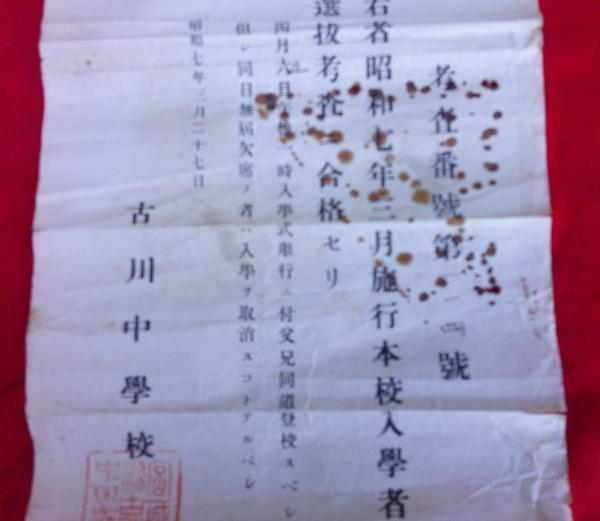 考査番號第一四號
右者昭和七年三月施行本校入學者
選抜考査ニ合格セリ
四月六日午後一時入學式擧行ニ付父兄同道登校スベシ
但シ同日無届欠席ノ者ハ入學ヲ取消スコトアルベシ
昭和七年三月二十七日
古川中學校